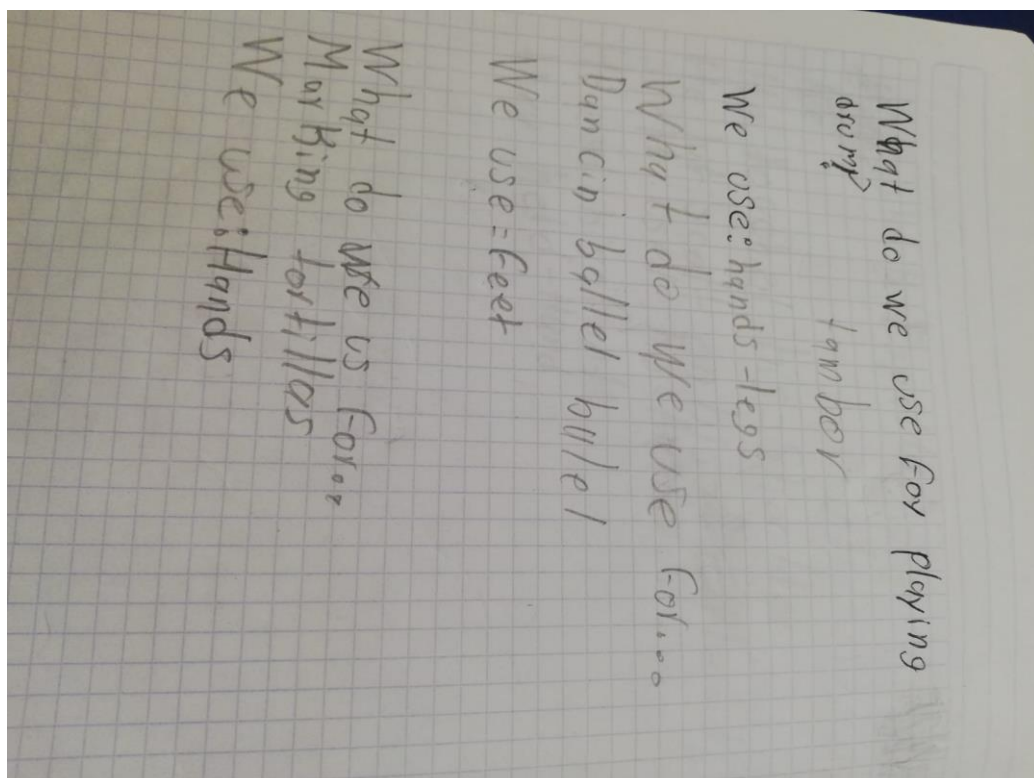 What do we use for playing
drum?
tambor
We use: hands - legs
What do we use for....
Dancin ballet ballet
We use = feet
What do we us for...
Marking tortillas
We use: Hands